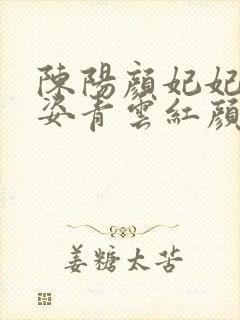 陳陽顏妃妃
姿青雲紅顏
姜糖太苦